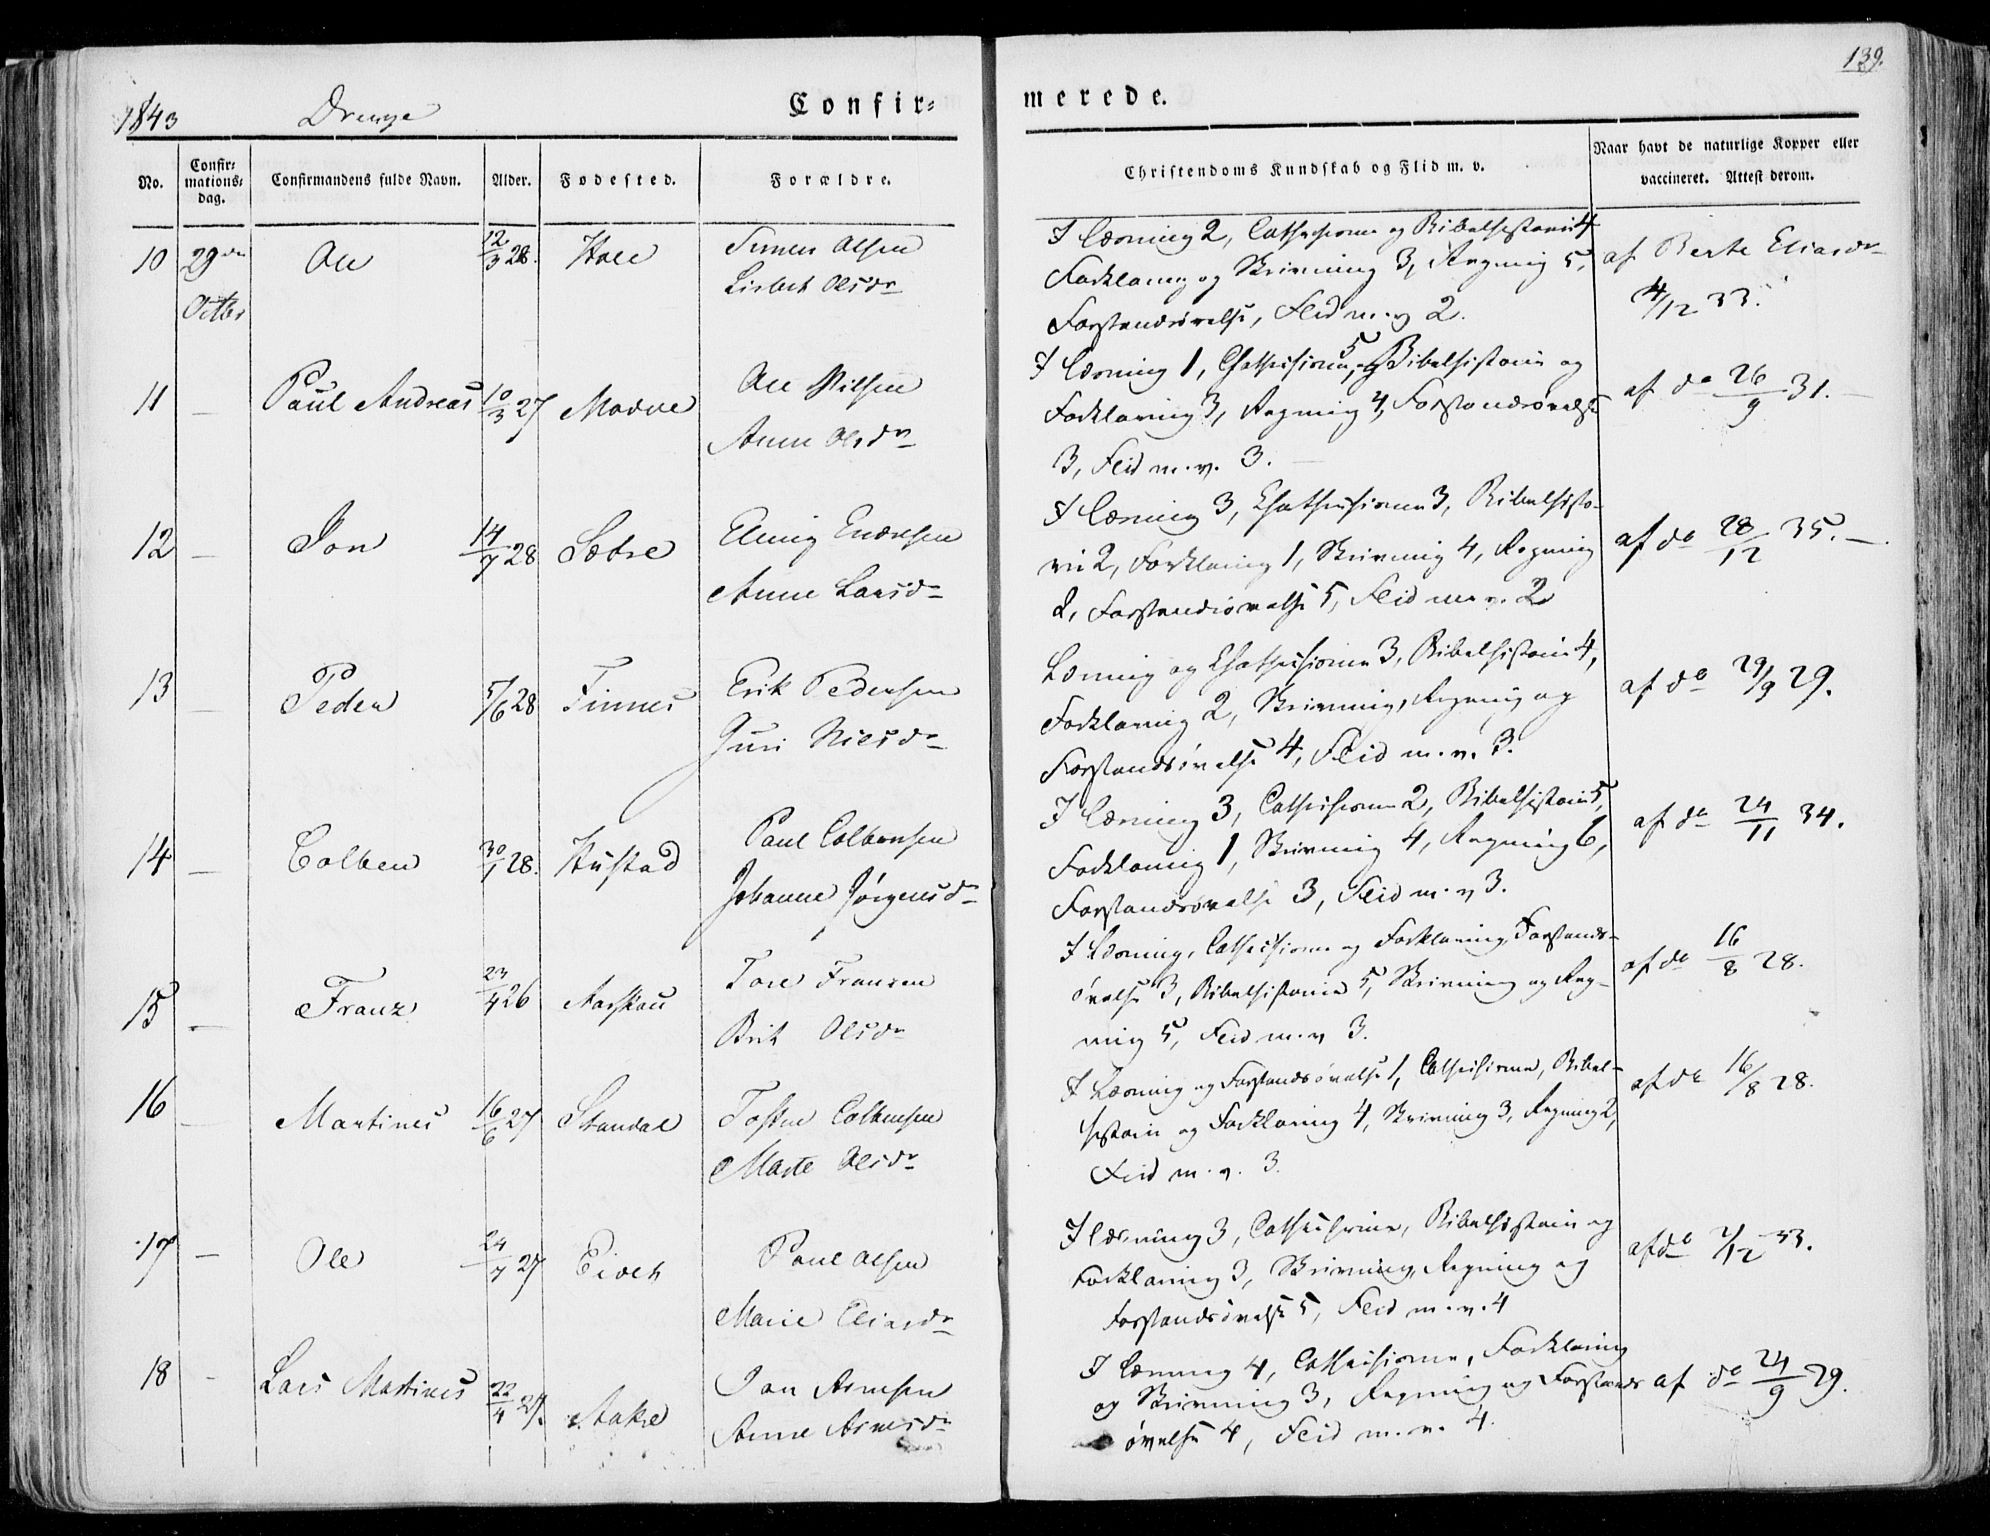 139.
1843 Drenge Confir= merede.
No. Confir= mations= dag. Confirmandens fulde Navn. Alder. Fødested. Forældre. Christendoms Kundskab og Flid m. v. Naar havt de naturlige Kopper eller vaccineret. Attest derom.
10 29de Octbr Ole 12/3 28. Hole Simen Olsen
Lisbet Olsdr
I Læsning 2, Cathechisme og Bibelhistorie 4
Forklaring og Skrivning 3, Regning 5,
Forstandsøvelse, Flid m. v 2.
af Berte Eliasdr
4/12 33.
11 – Paul Andreas 10/3 27 Modve Ole Nilsen
Anne Olsdr
I Læsning 1, Chatechisme 5, og Bibelhistorie og
Forklaring 3, Regning 4, Forstandsøvelse
3, Flid m. v. 3.
af do 26/9 31. –
12 – Jon 14/7 28 Sætre Elling Endresen
Anne Larsdr
I Læsning 3, Chathechisme 3, Bibelhisto-
rie 2, Forklaring 1, Skrivning 4, Regning
2, Forstandsøvelse 5, Flid m. v. 2
af do 28/12 35. –
13 – Peder 5/6 28 Finnes Erik Pedersen
Guri Nilsdr
Læsning og Chathechisme 3, Bibelhistorie 4,
Forklaring 2, Skrivning, Regning og
Forstandsøvelse 4, Flid m. v. 3.
af do 29/9 29.
14 – Colben 30/1 28. Hustad Paul Colbensen
Johanne Jørgensdr
I Læsning 3, Cathechisme 2, Bibelhistorie 5,
Forklaring 1, Skrivning 4, Regning 6,
Forstandsøvelse 3, Flid m. v 3.
af do 24/11 34.
15 – Franz 23/4 26 Aarskau Tore Franzen
Brit Olsdr
I Læsning, Cathechisme og Forklaring, Forstands-
øvelse 3, Bibelhistorie 5, Skrivning og Reg-
ning 5, Flid m. v 3.
af do 16/8 28.
16 – Martines 16/6 27 Standal Tosten Colbensen
Marte Olsdr
I Læsning og Forstandsøvelse 1, Cathechisme, Bibel-
historie og Forklaring 4, Skrivning 3, Regning 2,
Flid m. v. 3.
af do 16/8 28.
17 – Ole 24/7 27 Eiveh Paul Olsen
Marie Eliasdr
I Læsning 3, Cathechisme, Bibelhistorie og
Forklaring 3, Skrivning, Regning og
Forstandsøvelse 5, Flid m. v. 4
af do 2/12 33.
18 – Lars Martines 22/4 27. Aakre Jon Arnesen
Anne Arnesdr
I Læsning 4, Cathechisme, Forklaring
og Skrivning 3, Regning og Forstands
øvelse 4, Flid m. v. 4.
af do 24/9 29.